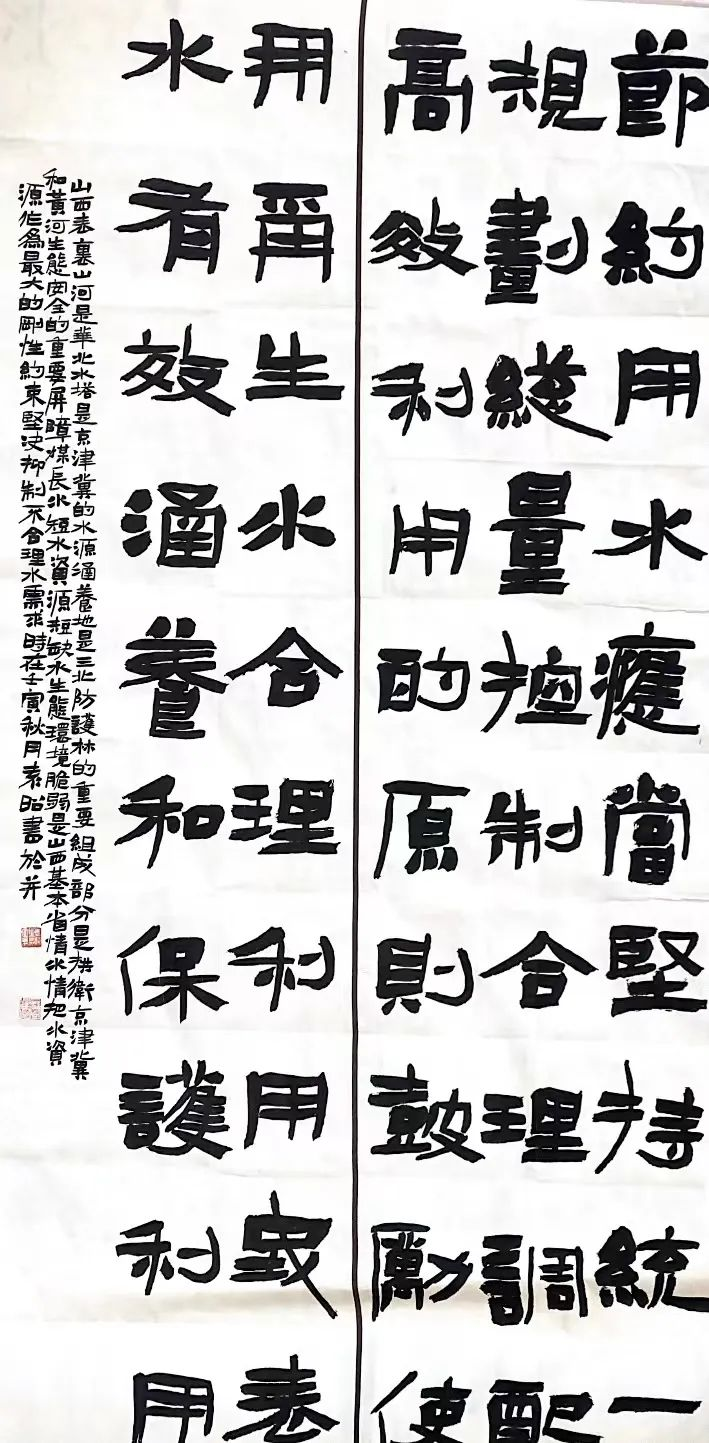 節約用水應當堅持統一
規劃總量控制合理調配
高效利用的原則鼓勵使
用再生水合理利用地表
水有效涵養和保護利用
山西表裏山河是華北水塔是京津冀的水源涵養地是三北防護林的重要組成部分是拱衛京津冀
和黃河生態安全的重要屏障煤長水短水資源短缺水生態環境脆弱是山西基本省情水情把水資
源作為最大的剛性約束堅決抑制不合理水需求時在壬寅秋月袁昭書於并